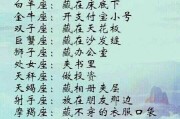 白羊座：藏在床底下
金牛座：开支付宝小号
双子座：藏在天花板
巨蟹座：藏在沙发缝
狮子座：藏办公室
处女座：夹书里
天秤座：做投资
天蝎座：藏相册夹层
射手座：放在朋友那边
摩羯座：藏不穿的衣服口袋